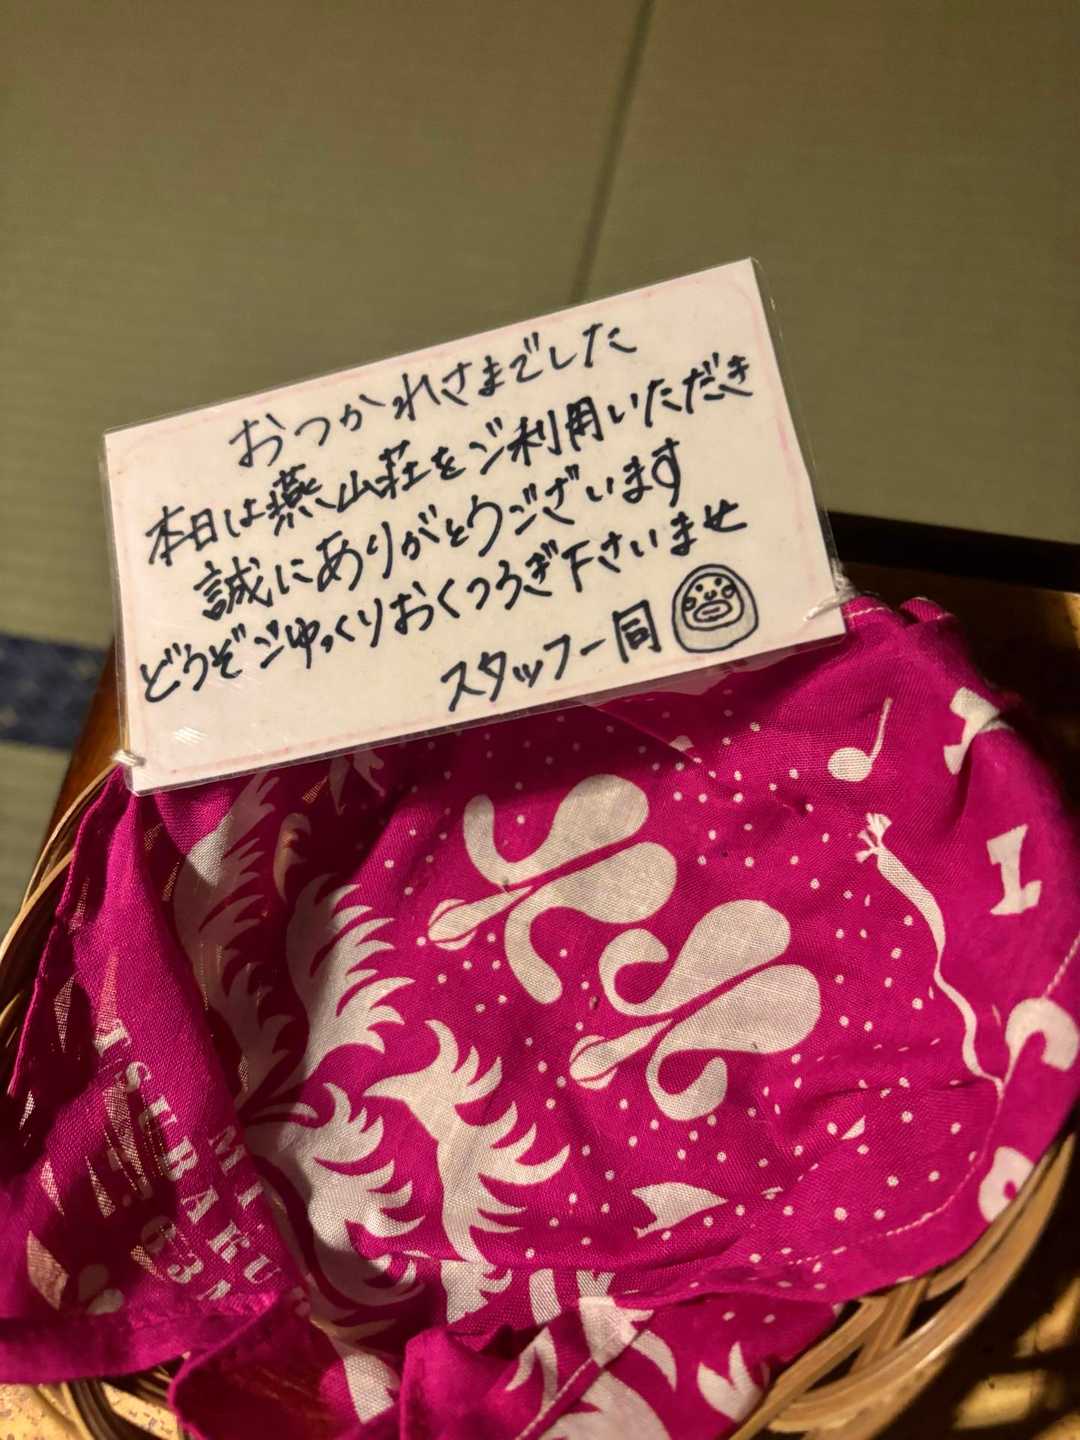 おつかれさまでした
本日は燕山荘をご利用いただき
誠にありがとうございます
どうぞごゆっくりおくつろぎ下さいませ
スタッフ一同
MT.
TSUBAKU